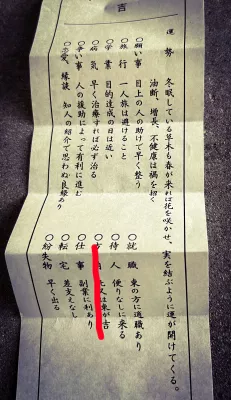 吉
運勢 冬眠している草木も春が来れば花を咲かせ、実を結ぶように運が開けてくる。
油断、増長、不健康は禍を招く
○願い事 目上の人の助けで早く整う
○旅行 一人旅は避けること
○学業 目的達成の日は近い
○病気 早く治療すれば必ず治る
○争い事 人の援助によって有利に進む
○恋愛、縁談 知人の紹介で思わぬ良縁あり
○就職 東の方に適職あり
○待人 便りなしに来る
東が吉
○仕事 副業に利あり
○転宅 差支えなし
○紛失物 早く出る